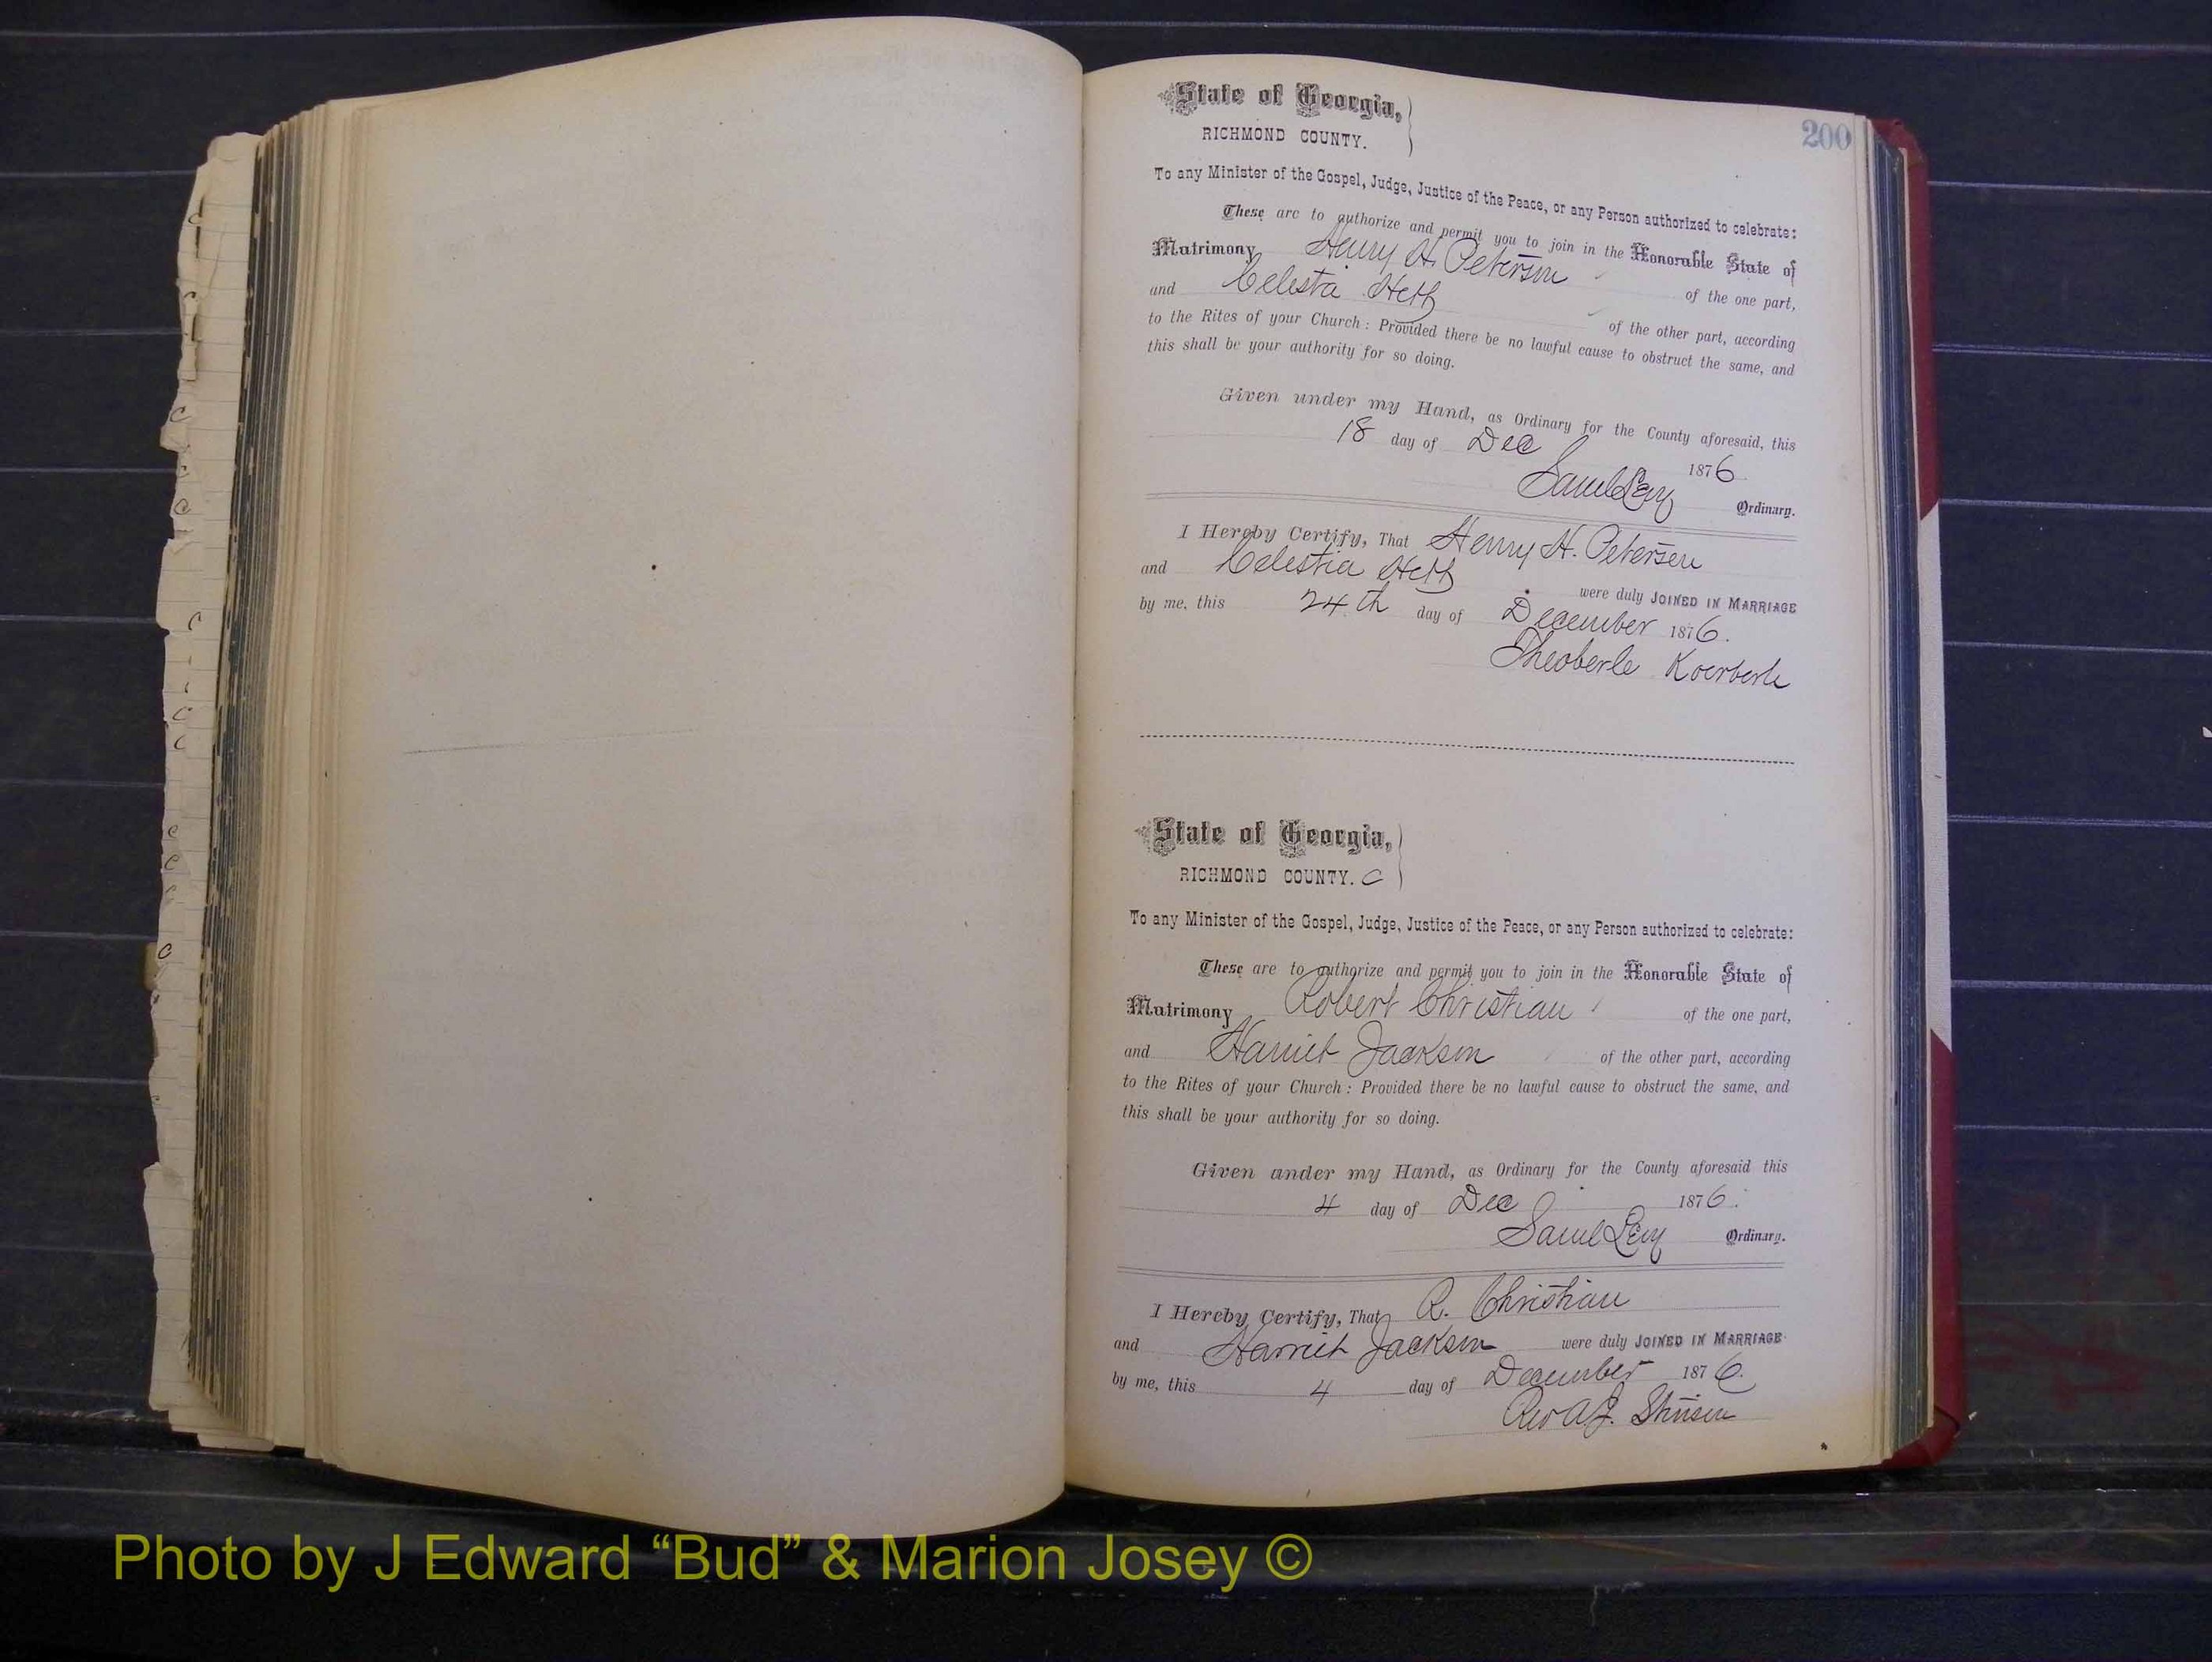 200
State of Georgia,
RICHMOND COUNTY.
To any Minister of the Gospel, Judge, Justice of the Peace, or any Person authorized to celebrate:
These are to authorize and permit you to join in the Honorable State of
Matrimony Henry H. Peterson of the one part,
and Celestia of the other part, according
to the Rites of your Church: Provided there be no lawful cause to obstruct the same, and
this shall be your authority for so doing.
Given under my Hand, as Ordinary for the County aforesaid, this
18 day of Dec 1876
Saml Levy Ordinary.
I Hereby Certify, That Henry H. Petersen
and Celestia were duly JOINED IN MARRIAGE
by me, this 24th day of December 1876.
Theoberle Koerberle
State of Georgia,
RICHMOND COUNTY. C
To any Minister of the Gospel, Judge, Justice of the Peace, or any Person authorized to celebrate:
These are to authorize and permit you to join in the Honorable State of
Matrimony Robert Christian of the one part,
and Harriet Jackson of the other part, according
to the Rites of your Church: Provided there be no lawful cause to obstruct the same, and
this shall be your authority for so doing.
Given under my Hand, as Ordinary for the County aforesaid this
4 day of Dec 1876.
Saml Levy Ordinary.
I Hereby Certify, That R. Christian
and Harriet Jackson were duly JOINED IN MARRIAGE
by me, this 4 day of December 1876.
Rev A. J. Stinson
Photo by J Edward “Bud” & Marion Josey ©